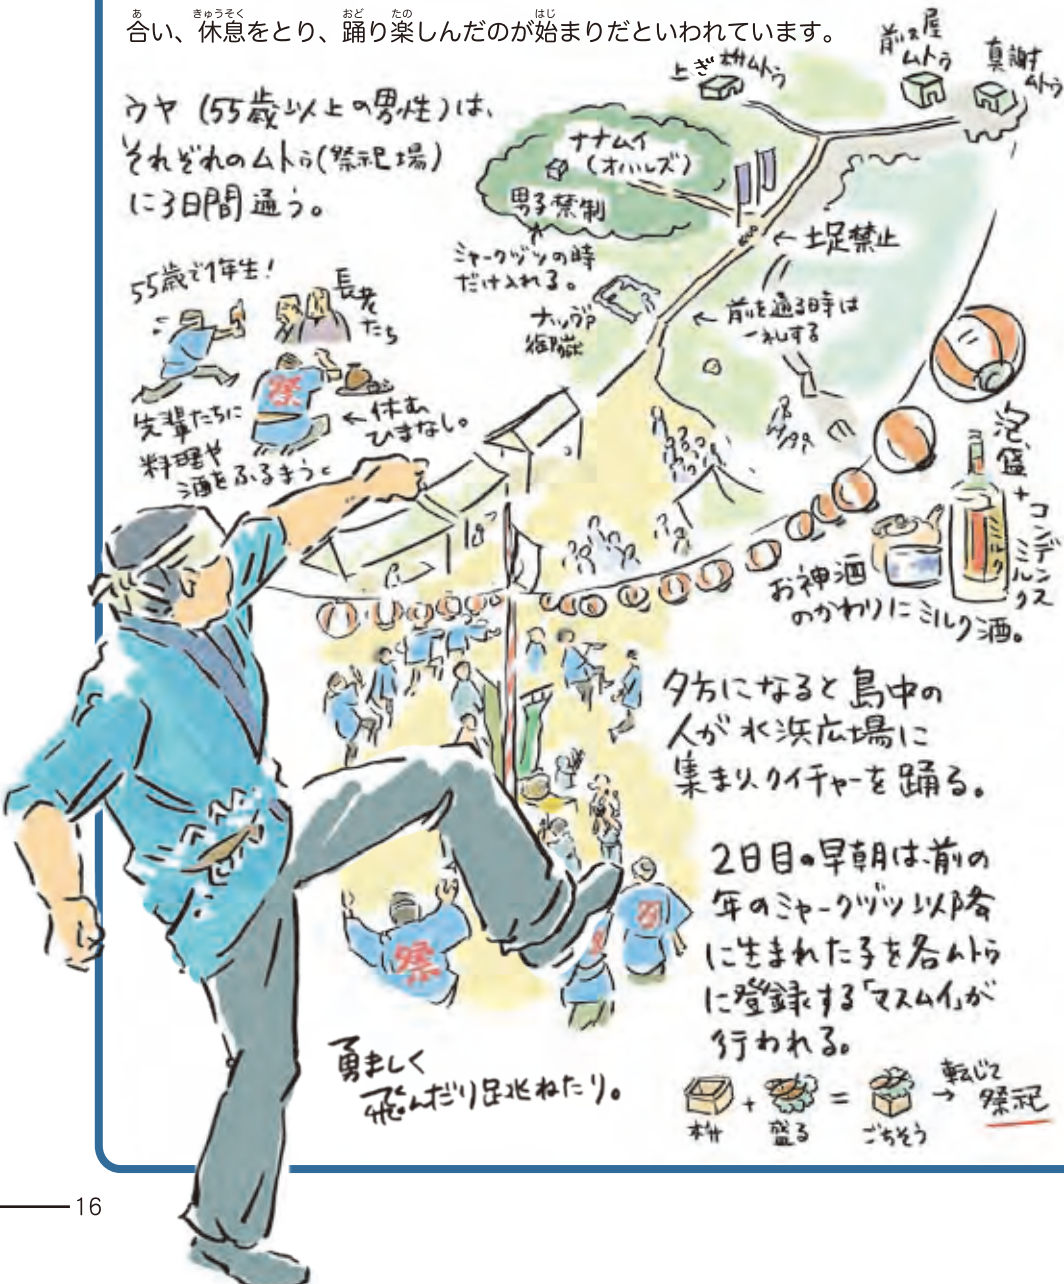 合い、休息をとり、踊り楽しんだのが始まりだといわれています。
ウヤ(55歳以上の男性)は、
それぞれのムトゥ(祭祀場)
に3日間通う。
上ぎ桝ムトゥ
前ぬ屋
ムトゥ
真謝
ムトゥ
ナナムイ
(オハルズ)
男子禁制
ミャークヅツの時
だけ入れる。
ナッヴァ
御嶽
←土足禁止
←前を通る時は
一礼する
55歳で1年生!
長老
たち
先輩たちに
料理や
酒をふるまう。
←休む
ひまなし。
泡盛+コンデンスミルク
お神酒
のかわりにミルク酒。
夕方になると島中の
人が水浜広場に
集まり、クイチャーを踊る。
2日目の早朝は、前の
年のミャークヅツ以降
に生まれた子を各ムトゥ
に登録する「マスムイ」が
行われる。
勇ましく
飛んだり跳ねたり。
+ = → 転じて
祭祀
枡 盛る ごちそう
祭
祭
16